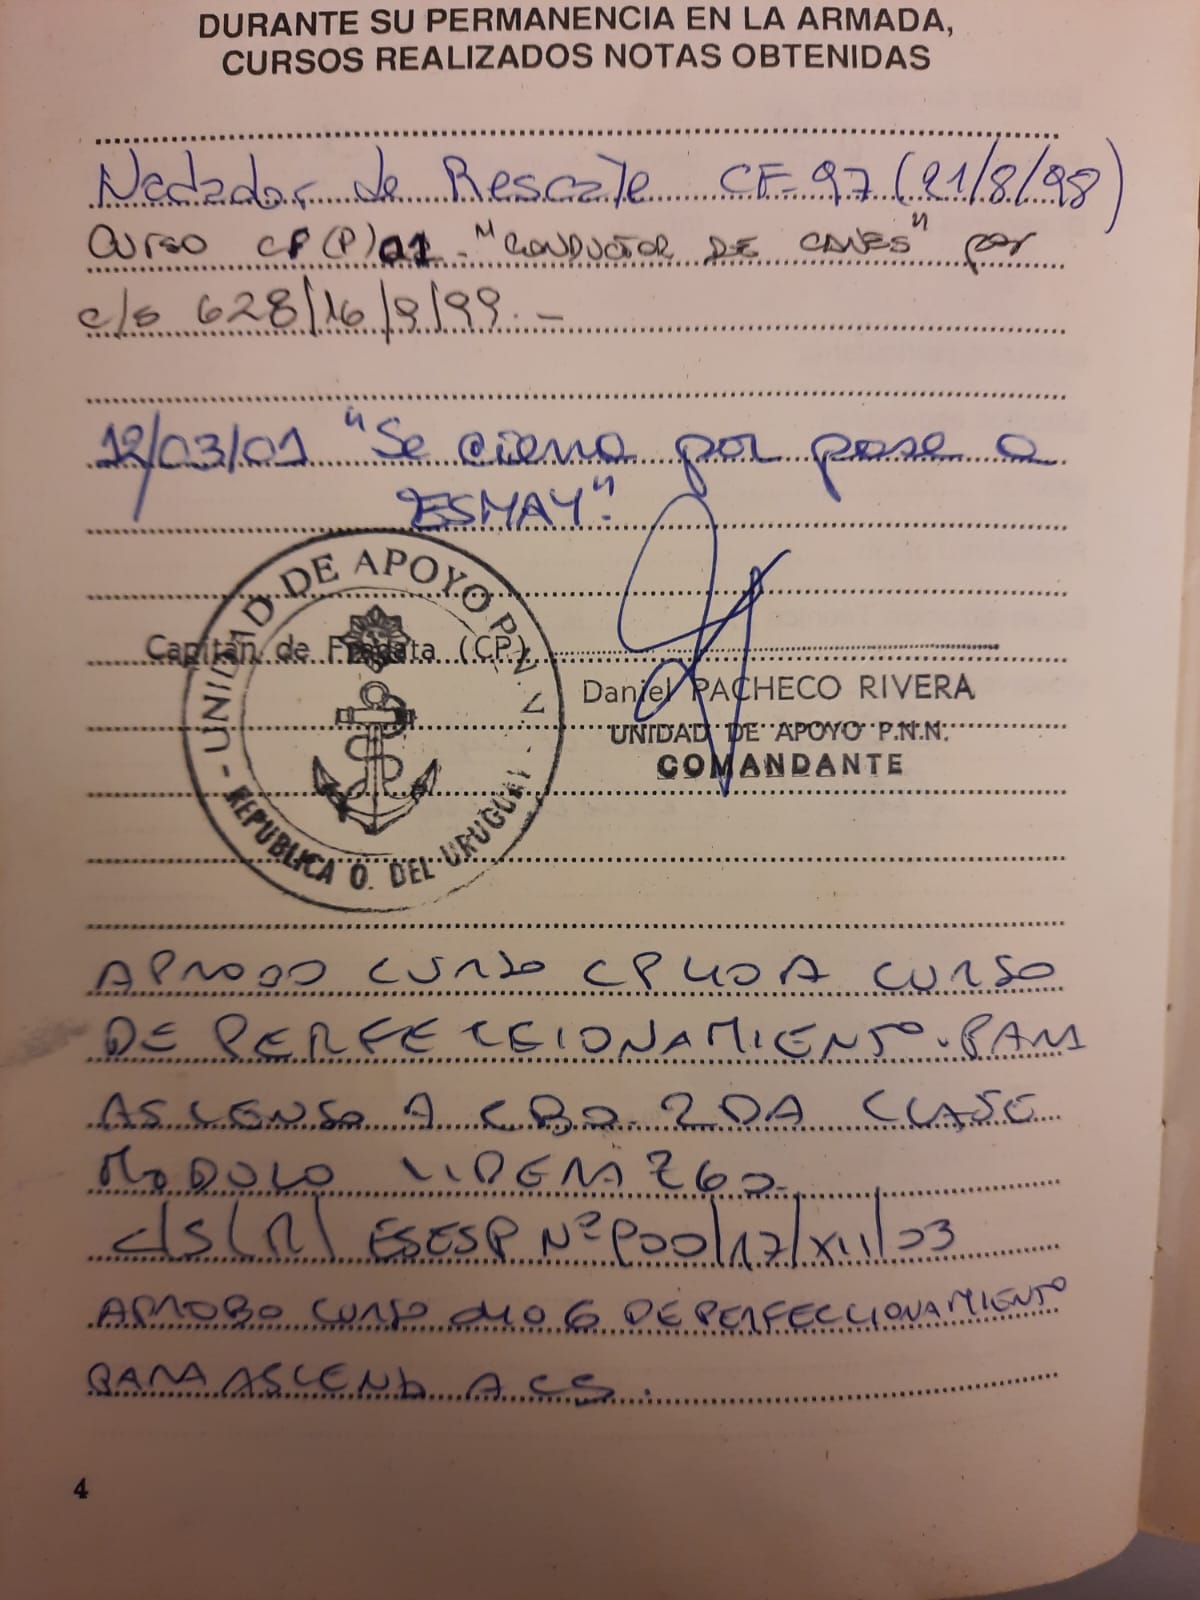 DURANTE SU PERMANENCIA EN LA ARMADA,
CURSOS REALIZADOS NOTAS OBTENIDAS
Nadador de Rescate CF-97 (21/8/98)
Curso CP (P) 01 - "CONDUCTOR DE CANES" por
c/s 628/16/9/99. -
12/03/01 "Se cierra por pase a
ESMAY".
UNIDAD DE APOYO P.N.
Capitán de Fragata (CP)
Daniel PACHECO RIVERA
UNIDAD DE APOYO P.N.N.
COMANDANTE
REPUBLICA O. DEL URUGUAY
APROBO CURSO CP 40 A CURSO
DE PERFECCIONAMIENTO. PARA
ASCENSO A CBO. 2DA CLASE
MODULO LIDERAZGO.
C/S (R) ESESP Nº P00/17/XII/03
APROBO CURSO 406 DE PERFECCIONAMIENTO
PARA ASCENSO A CS.
4